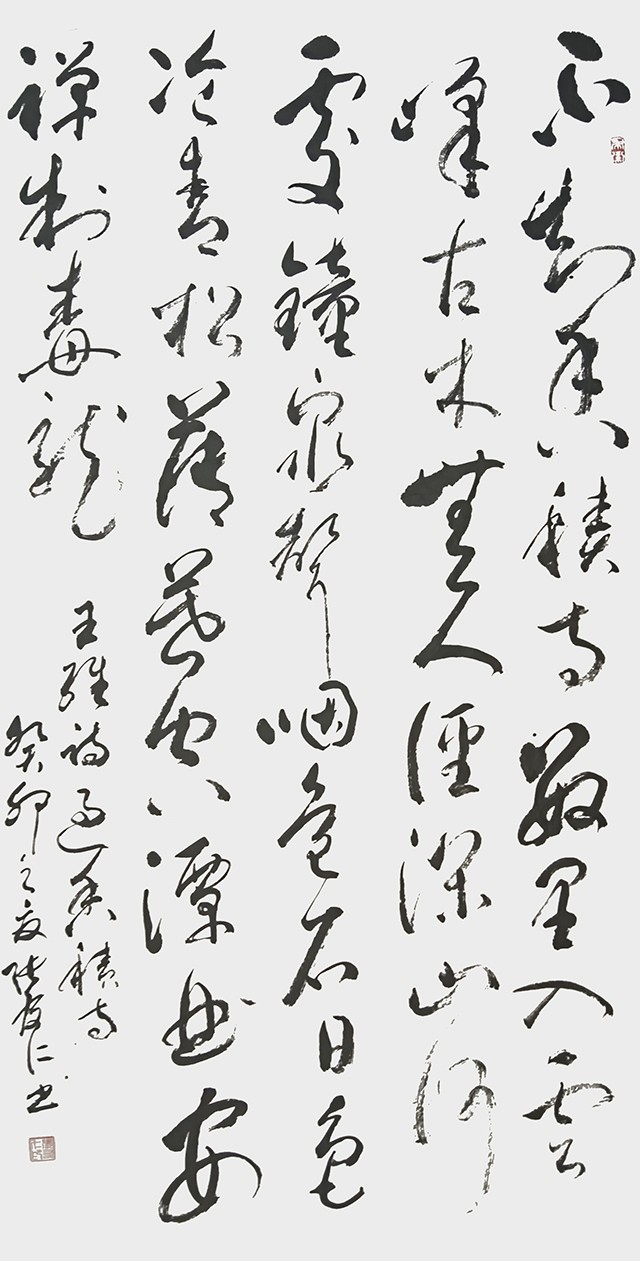 不知香積寺數里入雲
峰古木無人徑深山何
處鐘泉聲咽危石日色
冷青松薄暮空潭曲安
禪制毒龍
王維詩過香積寺
癸卯之夏仁书